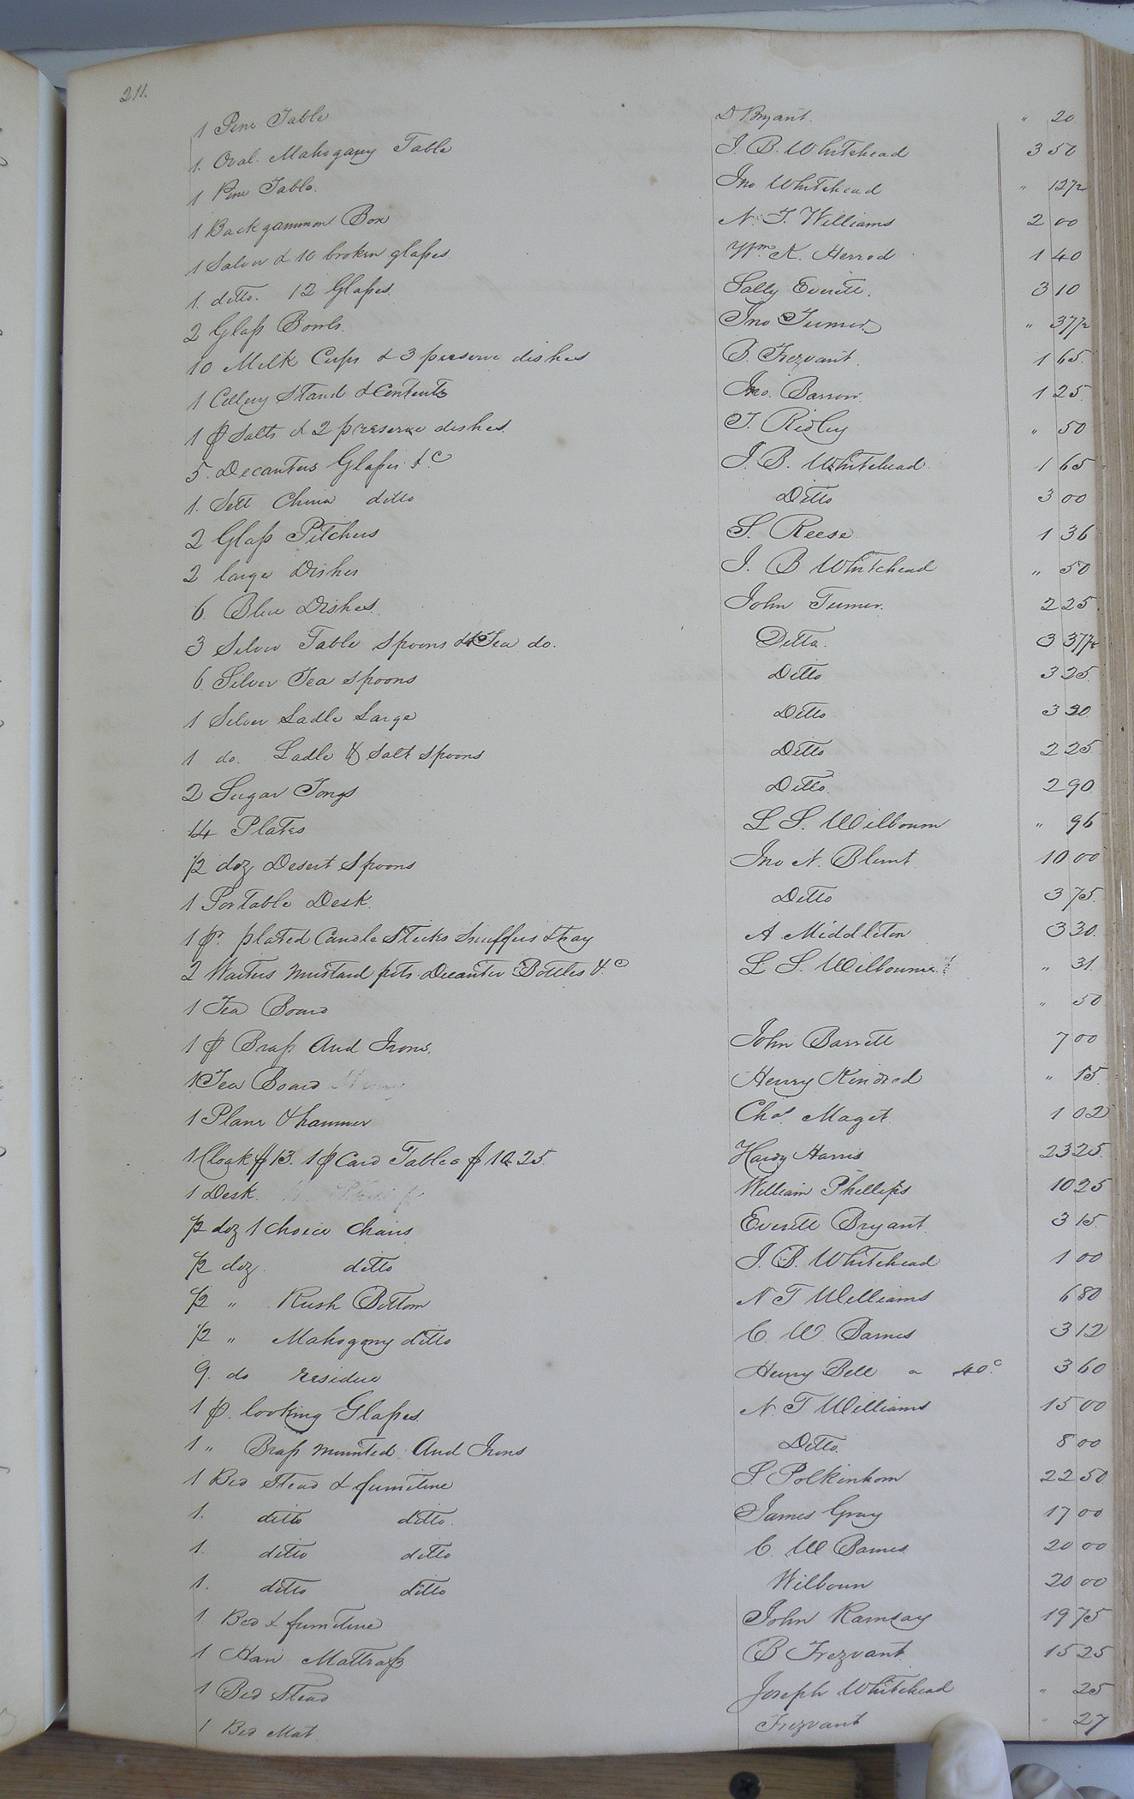 211.
1 Pine Table D Bryant. " 20
1. Oval Mahogany Table J. B. Whitehead 3 50
1 Pine Table. Jno Whitehead " 12½
1 Backgammon Box N. T. Williams 2 00
1 Salver & 10 broken glasses Wm K. Herrod 1 40
1. ditto. 12 Glasses Sally Everitt. 3 10
2 Glass Bowls. Jno Turner " 37½
10 Milk Cups & 3 preserve dishes B. Trezvant 1 65
1 Cellery Stand & Contents Jno. Barrow. 1 25
1 p Salts & 2 preserve dishes T. Ridley " 50
5. Decanters Glasses &c J. B. Whitehead 1 65
1. Sett China ditto Ditto 3 00
2 Glass Pitchers S. Reese 1 36
2 large Dishes J. B Whitehead " 50
6. Blue Dishes John Turner. 2 25
3 Silver Table Spoons & 4 Tea do. Ditto. 3 37½
6 Silver Tea Spoons Ditto 3 25
1 Silver Ladle Large Ditto 3 20
1 do. Ladle & Salt Spoons Ditto 2 25
2 Sugar Tongs Ditto. 2 90
14 Plates L S. Wilbourn " 96
½ doz Desert Spoons Jno N. Blunt 10 00
1 Portable Desk Ditto 3 75
1 pr. plated Candle Sticks Snuffers & tray A Middleton 3 30
2 Waiters mustard pots Decanter Bottles &c L S. Wilbourne " 31
1 Tea Board " 50
1 p Brass And Irons. John Barrett 7 00
1 Tea Board Henry Kindred " 15
1 Plane & hammer Chas Maget 1 02
1 Cloak $13. 1 p Card Tables $10.25 Hardy Harris 23 25
1 Desk William Phillips 10 25
½ doz 1 choice chairs Everitt Bryant 3 15
½ doz ditto J. B. Whitehead 1 00
½ " Rush Bottom N T Williams 6 80
½ " Mahogony ditto C. W Barnes 3 12
9. do residue Henry Bell a 40c. 3 60
1 p. looking Glasses N. T Williams 15 00
1 " Brass mounted And Irons Ditto. 8 00
1 Bed Stead & furniture S. Polkinhorn 22 50
1. ditto ditto. James Gray 17 00
1. ditto ditto C. W Barnes 20 00
1. ditto ditto Wilbourn 20 00
1 Bed & furniture John Ramsay 19 75
1 Hair Mattrass B Trezvant 15 25
1 Bed Stead Joseph Whitehead " 25
1 Bed Mat Trezvant " 27